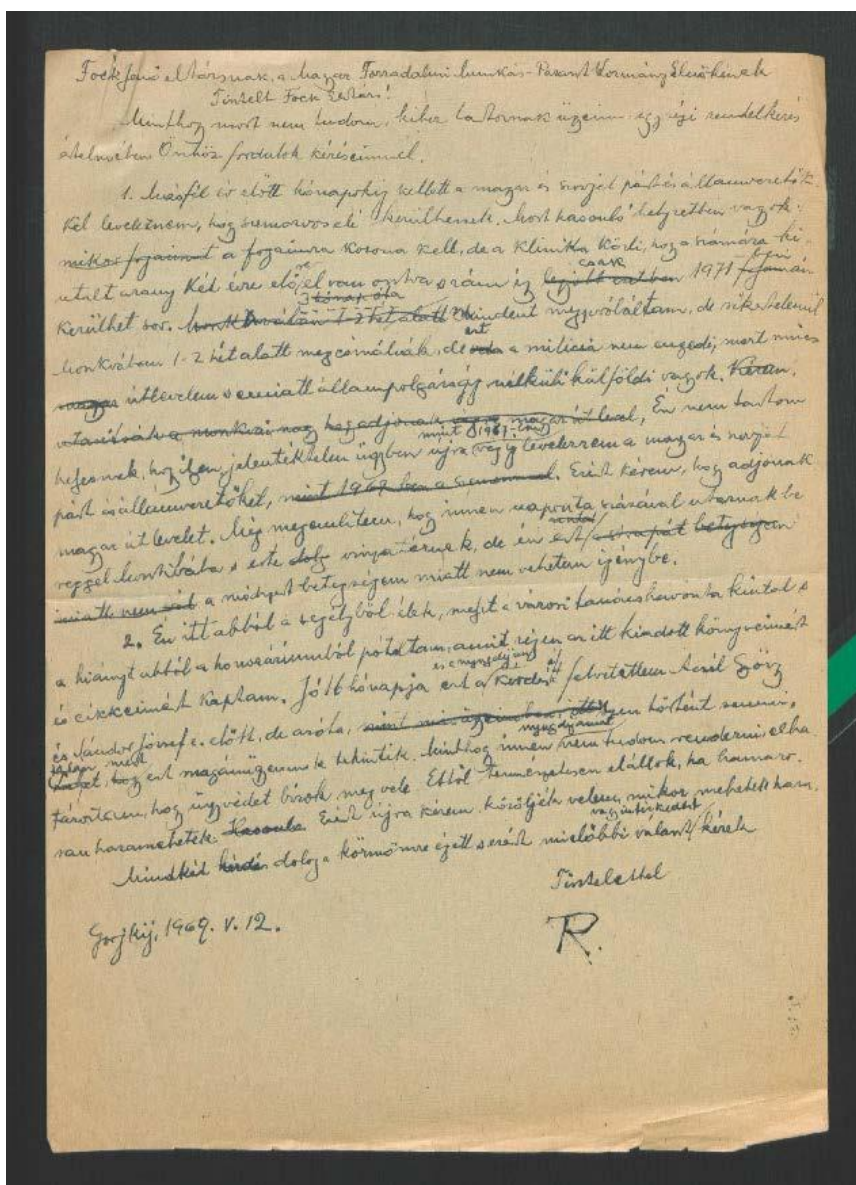 Fock Jenő elvtársnak, a Magyar Forradalmi Munkás-Paraszt Kormány Elnökének
Tisztelt Fock Elvtárs!
Minthogy most nem tudom, kihez tartoznak ügyeim egy régi rendelkezés
értelmében Önhöz fordulok kéréseimmel.
1. Másfél év előtt hónapokig kellett a magyar és szovjet párt és államvezetők-
kel leveleznem, hogy szemorvos elé kerülhessek. Most hasonló helyzetben vagyok:
a fogaimra korona kell, de a klinika közli, hogy a számára ki-
utalt arany két évre előre el van osztva s rám így csak 1971-ben
kerülhet sor. Mindent megpróbáltam, de sikertelenül
Moszkvában 1-2 hét alatt megcsinálnák, de ezt a milicia nem engedi, mert nincs
magyar útlevelem s emiatt állampolgárság nélküli külföldi vagyok. Kérem,
utasítsák a moszkvai nag hogy adjanak magyar útlevel, Én nem tartom
helyesnek, hogy ilyen jelentéktelen ügyben újra mint 1967-ben végig levelezzem a magyar és szovjet
párt és államvezetőket, mint 1967-ben a szememmel. Ezért kérem, hogy adjanak
magyar útlevelet. Még megemlítem, hogy innen naponta százával utaznak be
reggel Moszkvába s este visszatérnek, de én ezt
miatt nem a módszert betegségem miatt nem vehetem igénybe.
2. Én itt abból a segélyből élek, melyet a városi tanács havonta kiutal s
a hiányt abból a honoráriumból pótoltam, amit régen az itt kiadott könyveimért
és cikkeimért kaptam. Jó 16 hónapja ezt a kérdést és a nyugdíjam felvetettem Aczél György
és Sándor József e. előtt, de azóta, nem történt semmi,
talán, mert ezt magánügyemnek tekintik. Minthogy innen nyugdíjamat nem tudom rendezni elha-
tároztam, hogy ügyvédet bízok meg vele. Ettől természetesen elállok, ha hamaro-
san hazamehetek. Ezért újra kérem közöljék velem, mikor mehetek haza.
Mindkét kérdés dolog a körmömre égett s ezért mielőbbi választ vagy intézkedést kérek
Tisztelettel
Gorjkij, 1969. V. 12.
R.